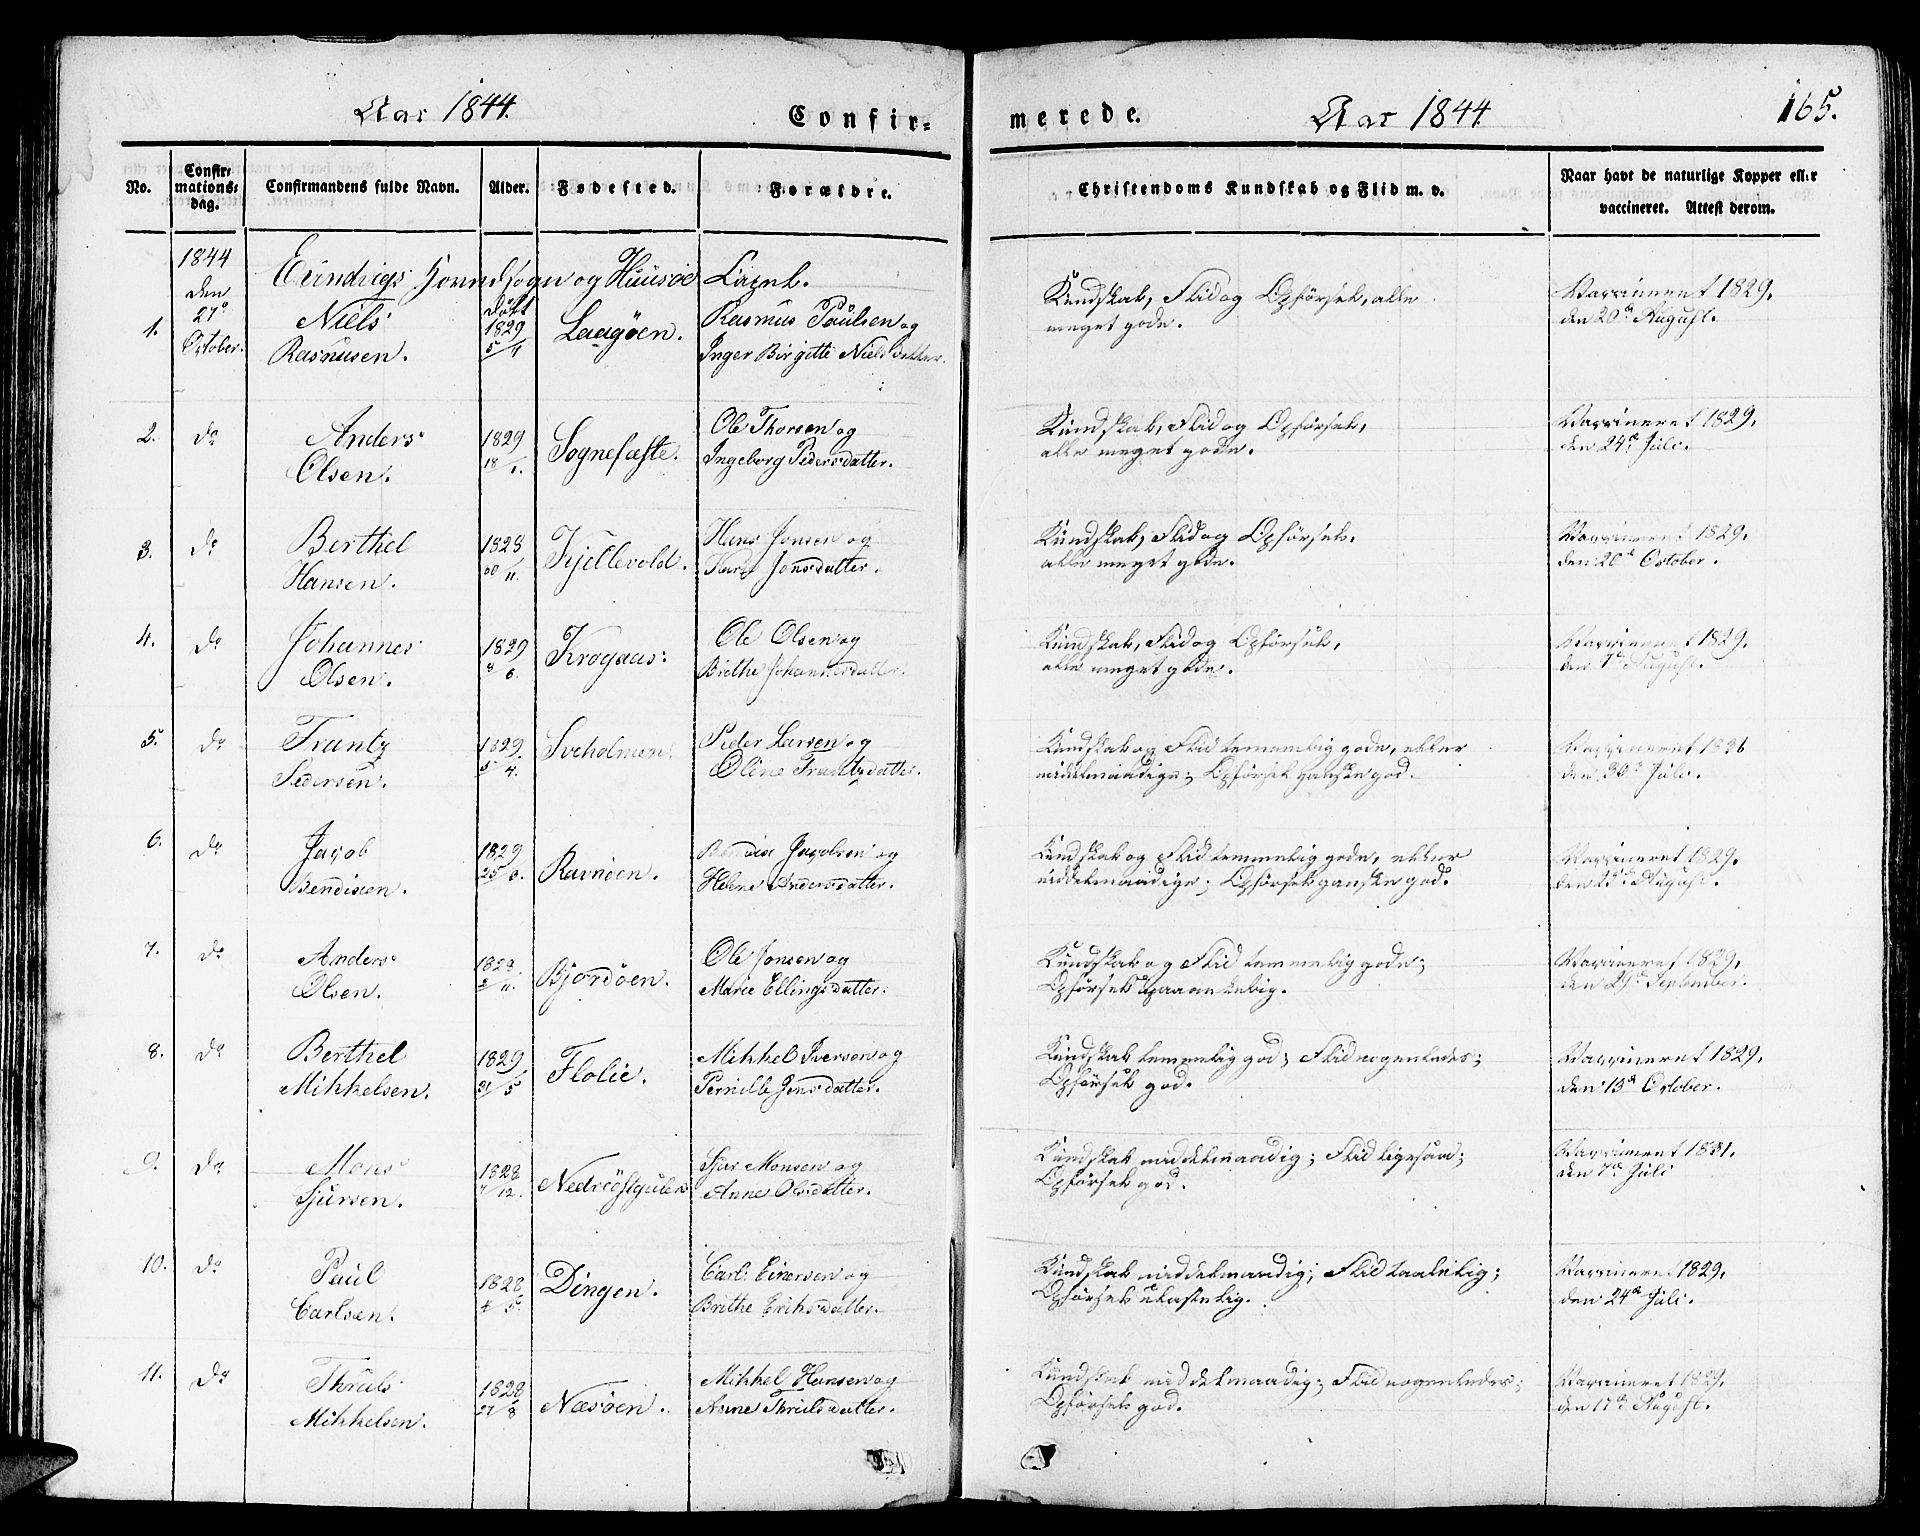 Aar 1844.
Confir-
No.
Confir-
mations-
dag.
Confirmandens fulde Navn.
Alder.
Fødested.
Forældre.
1844
den
27de
October.
Hovedsogn og Huusøe
1.
Niels
Rasmusen.
døbt
1829
5/4
Laagøen.
Rasmus Paulsen og
Inger Birgitte Nielsdatter.
2.
do
Anders
Olsen.
1829
18/1.
Sognefæste.
Ole Thorsen og
Ingeborg Pedersdatter.
3.
do
Berthel
Hansen.
1828
30/11.
Kjellevold.
Hans Jonsen og
Jonsdatter.
4.
do
Johannes
Olsen.
1829
8/6.
Krogaas.
Ole Olsen og
Brithe Johannesdatter.
5.
do
Frantz
Pedersen.
1829
5/4.
Sveholmen.
Peder Larsen og
Oline Frantzdatter.
6.
do
Jacob
Bendixen.
1829
Ravnøen.
Bendix Jacobsen og
Helene Andersdatter.
7.
do
Anders
Olsen.
Bjordøen.
Ole Jonsen og
Marie Ellingsdatter.
8.
do
Berthel
Mikkelsen.
1829
31/5
Flolie.
Mikkel Iversen og
Pernille Jensdatter.
9.
do
Mons
Sjursen.
1828
Nedreöstgulen
Sjur Monsen og
Anne Olsdatter.
10.
do
Paul
Carlsen.
1828
Dingen.
Carl Einersen og
Brithe Eriksdatter.
11.
do
Thruls
Mikkelsen.
1828
27/8
Næsøen.
Mikkel Hansen og
Anne Thrulsdatter.
merede.
Aar 1844
165.
Christendoms Kundskab og Flid m. v.
Naar havt de naturlige Kopper eller
vaccineret. Attest derom.
Kundskab, Flid og Opførsel, alle
meget gode.
Vaccineret 1829,
den 20de August.
Kundskab, Flid og Opførsel,
alle meget gode.
Vaccineret 1829,
den 24de Juli.
Kundskab, Flid og Opførsel,
alle meget gode.
Vaccineret 1829,
den 20de October.
Kundskab, Flid og Opførsel,
alle meget gode.
Vaccineret 1829,
den 7de August.
Kundskab og Flid temmelig gode, eller
middelmaadige; Opførsel ganske god.
Vaccineret 1836
den 30te Juli.
Kundskab og Flid temmelig gode, eller
middelmaadige; Opførsel ganske god.
Vaccineret 1829,
den 25de August.
Kundskab og Flid temmelig gode;
Opførsel upaaankelig.
Vaccineret 1829,
den 29de September.
Kundskab temmelig god; Flid nogenledes;
Opførsel god.
Vaccineret 1829,
den 13de October.
Kundskab middelmaadig; Flid ligesaa;
Opførsel god.
Vaccineret 1831,
den 7de Juli
Kundskab middelmaadig; Flid taalelig;
Opførsel ulastelig.
Vaccineret 1829,
den 24de Juli.
Kundskab middelmaadig; Flid nogenledes;
Opførsel god.
Vaccineret 1829,
den 17de August.